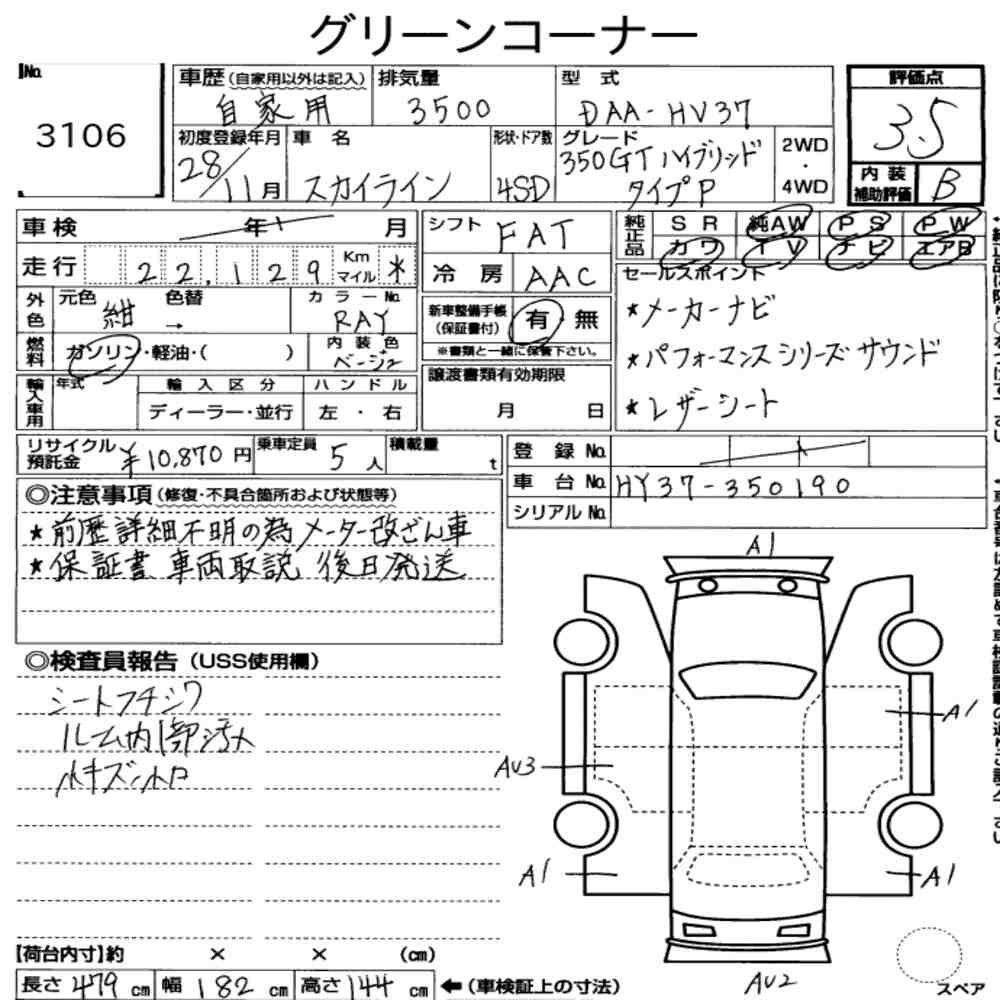 グリーンコーナー
No. 3106
車歴（自家用以外は記入） 自家用
排気量 3500
型式 DAA-HV37
評価点 3.5
初度登録年月 28/11月
車名 スカイライン
形状・ドア数 4SD
グレード 350GT ハイブリッド タイプP
2WD・4WD
内装補助評価 B
車検 年 月
シフト FAT
純正品 SR 純AW PS PW
カワ TV ナビ エアB
走行 22,129 Km マイル *
冷房 AAC
セールスポイント
外色 元色 紺 色替 →
カラーNo. RAY
新車整備手帳（保証書付） 有 無
※書類と一緒に保管下さい。
*メーカーナビ
燃料 ガソリン・軽油・( )
内装色 ベージュ
*パフォーマンスシリーズサウンド
輸入車用 年式 輸入区分 ハンドル
ディーラー・並行 左・右
譲渡書類有効期限
月 日
*レザーシート
リサイクル預託金 ¥10,870円
乗車定員 5人
積載量 t
登録No.
車台No. HY37-350190
シリアルNo.
◎注意事項（修復・不具合箇所および状態等）
*前歴詳細不明の為メーター改ざん車
*保証書 車両取説 後日発送
A1
◎検査員報告（USS使用欄）
シートフチシワ
ルーム内1部汚れ
A1
AU3
A1
A1
【荷台内寸】約 × × (cm)
長さ 479 cm 幅 182 cm 高さ 144 cm ←（車検証上の寸法）
AU2
スペア